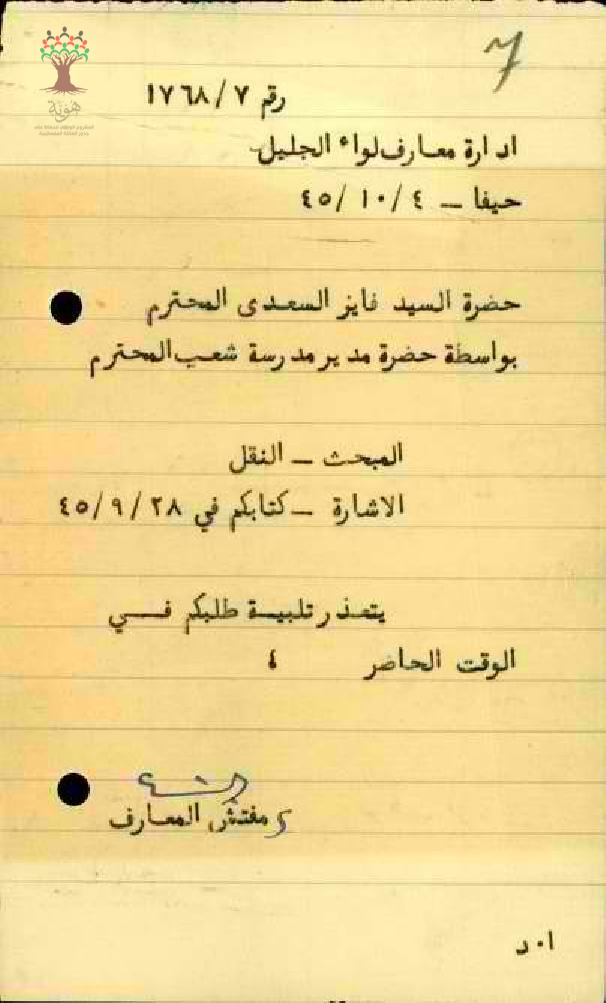 هوية
7
رقم ٧/١٧٦٨
ادارة معارف لواء الجليل
حيفا ــ ٤/١٠/٤٥
حضرة السيد فايز السعدى المحترم
بواسطة حضرة مدير مدرسة شعب المحترم
المبحث ــ النقل
الاشارة ــ كتابكم في ٢٨/٩/٤٥
يتعذر تلبية طلبكم فــي
الوقت الحاضر ٤
مفتش المعارف
ا٠د